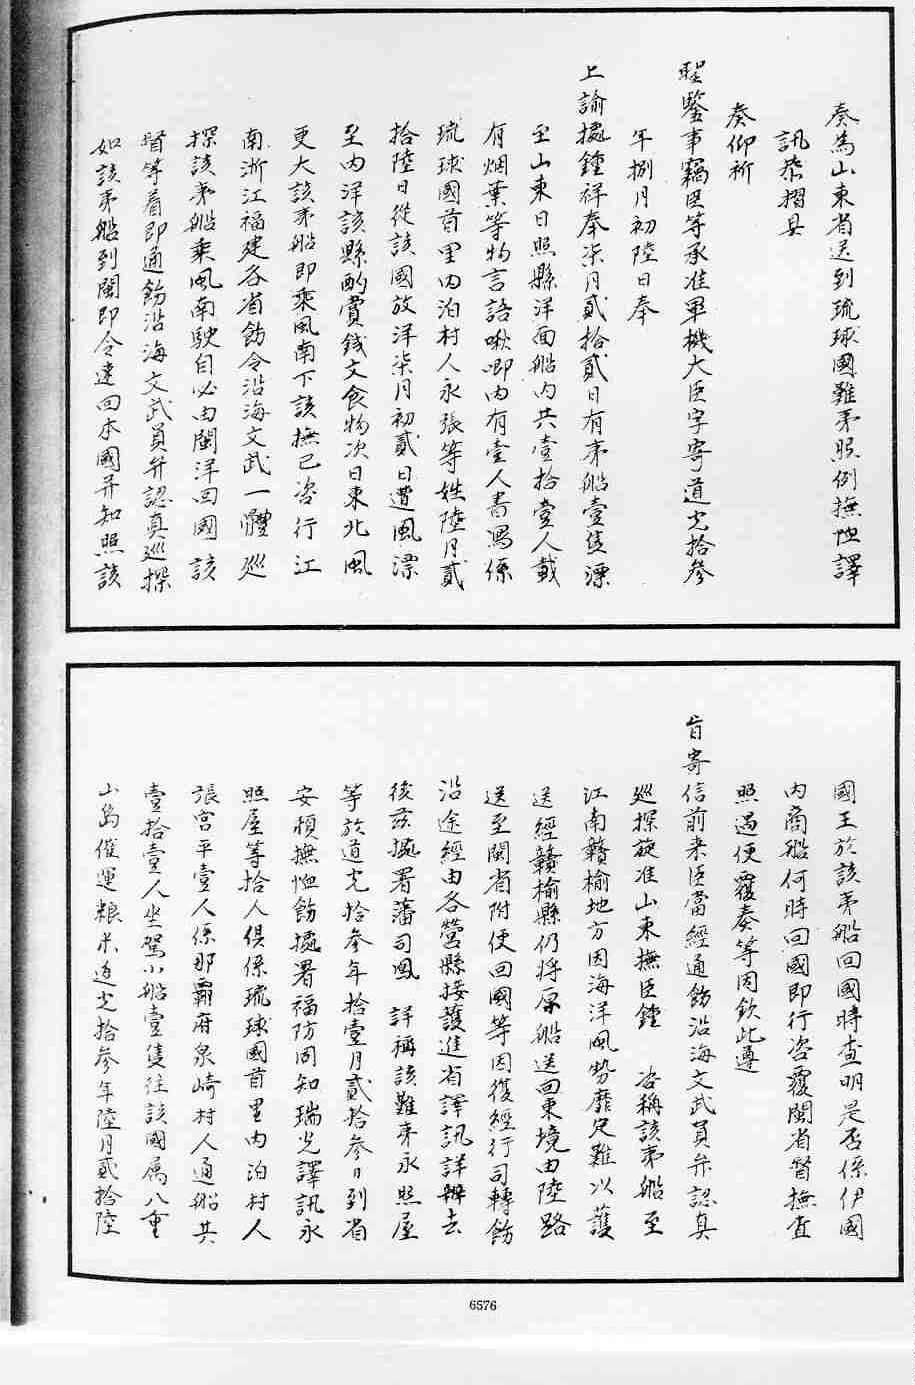 奏為山東省送到琉球國難夷照例撫恤譯
訊恭摺具
奏仰祈
聖鑒事竊臣等承准軍機大臣字寄道光拾參
年捌月初陸日奉
上諭據鍾祥奏柒月貳拾貳日有夷船壹隻漂
至山東日照縣洋面船內共壹拾壹人載
有烟葉等物言語啾唧內有壹人書寫係
琉球國首里內泊村人永張等姓陸月貳
拾陸日從該國放洋柒月初貳日遭風漂
至內洋該縣酌賞錢文食物次日東北風
更大該夷船即乘風南下該撫已咨行江
南浙江福建各省飭令沿海文武一體巡
探該夷船乘風南駛自必由閩洋回國該
督等着即通飭沿海文武員弁認真巡探
如該夷船到閩即令速回本國并知照該
國王於該夷船回國時查明是否係伊國
內商船何時回國即行咨覆閩省督撫查
照遇便覆奏等因欽此遵
旨寄信前來臣當經通飭沿海文武員弁認真
巡探旋准山東撫臣鍾 咨稱該夷船至
江南贛榆地方因海洋風勢靡定難以護
送經贛榆縣仍將原船送回東境由陸路
送至閩省附便回國等因復經行司轉飭
沿途經由各營縣接護進省譯訊詳辦去
後茲據署藩司鳳 詳稱該難夷永照屋
等於道光拾參年拾壹月貳拾參日到省
安頓撫恤飭據署福防同知瑞光譯訊永
照屋等拾人俱係琉球國首里內泊村人
張宮平壹人係那霸府泉崎村人通船共
壹拾壹人坐駕小船壹隻往該國属八重
山島催運粮米道光拾參年陸月貳拾陸
6576